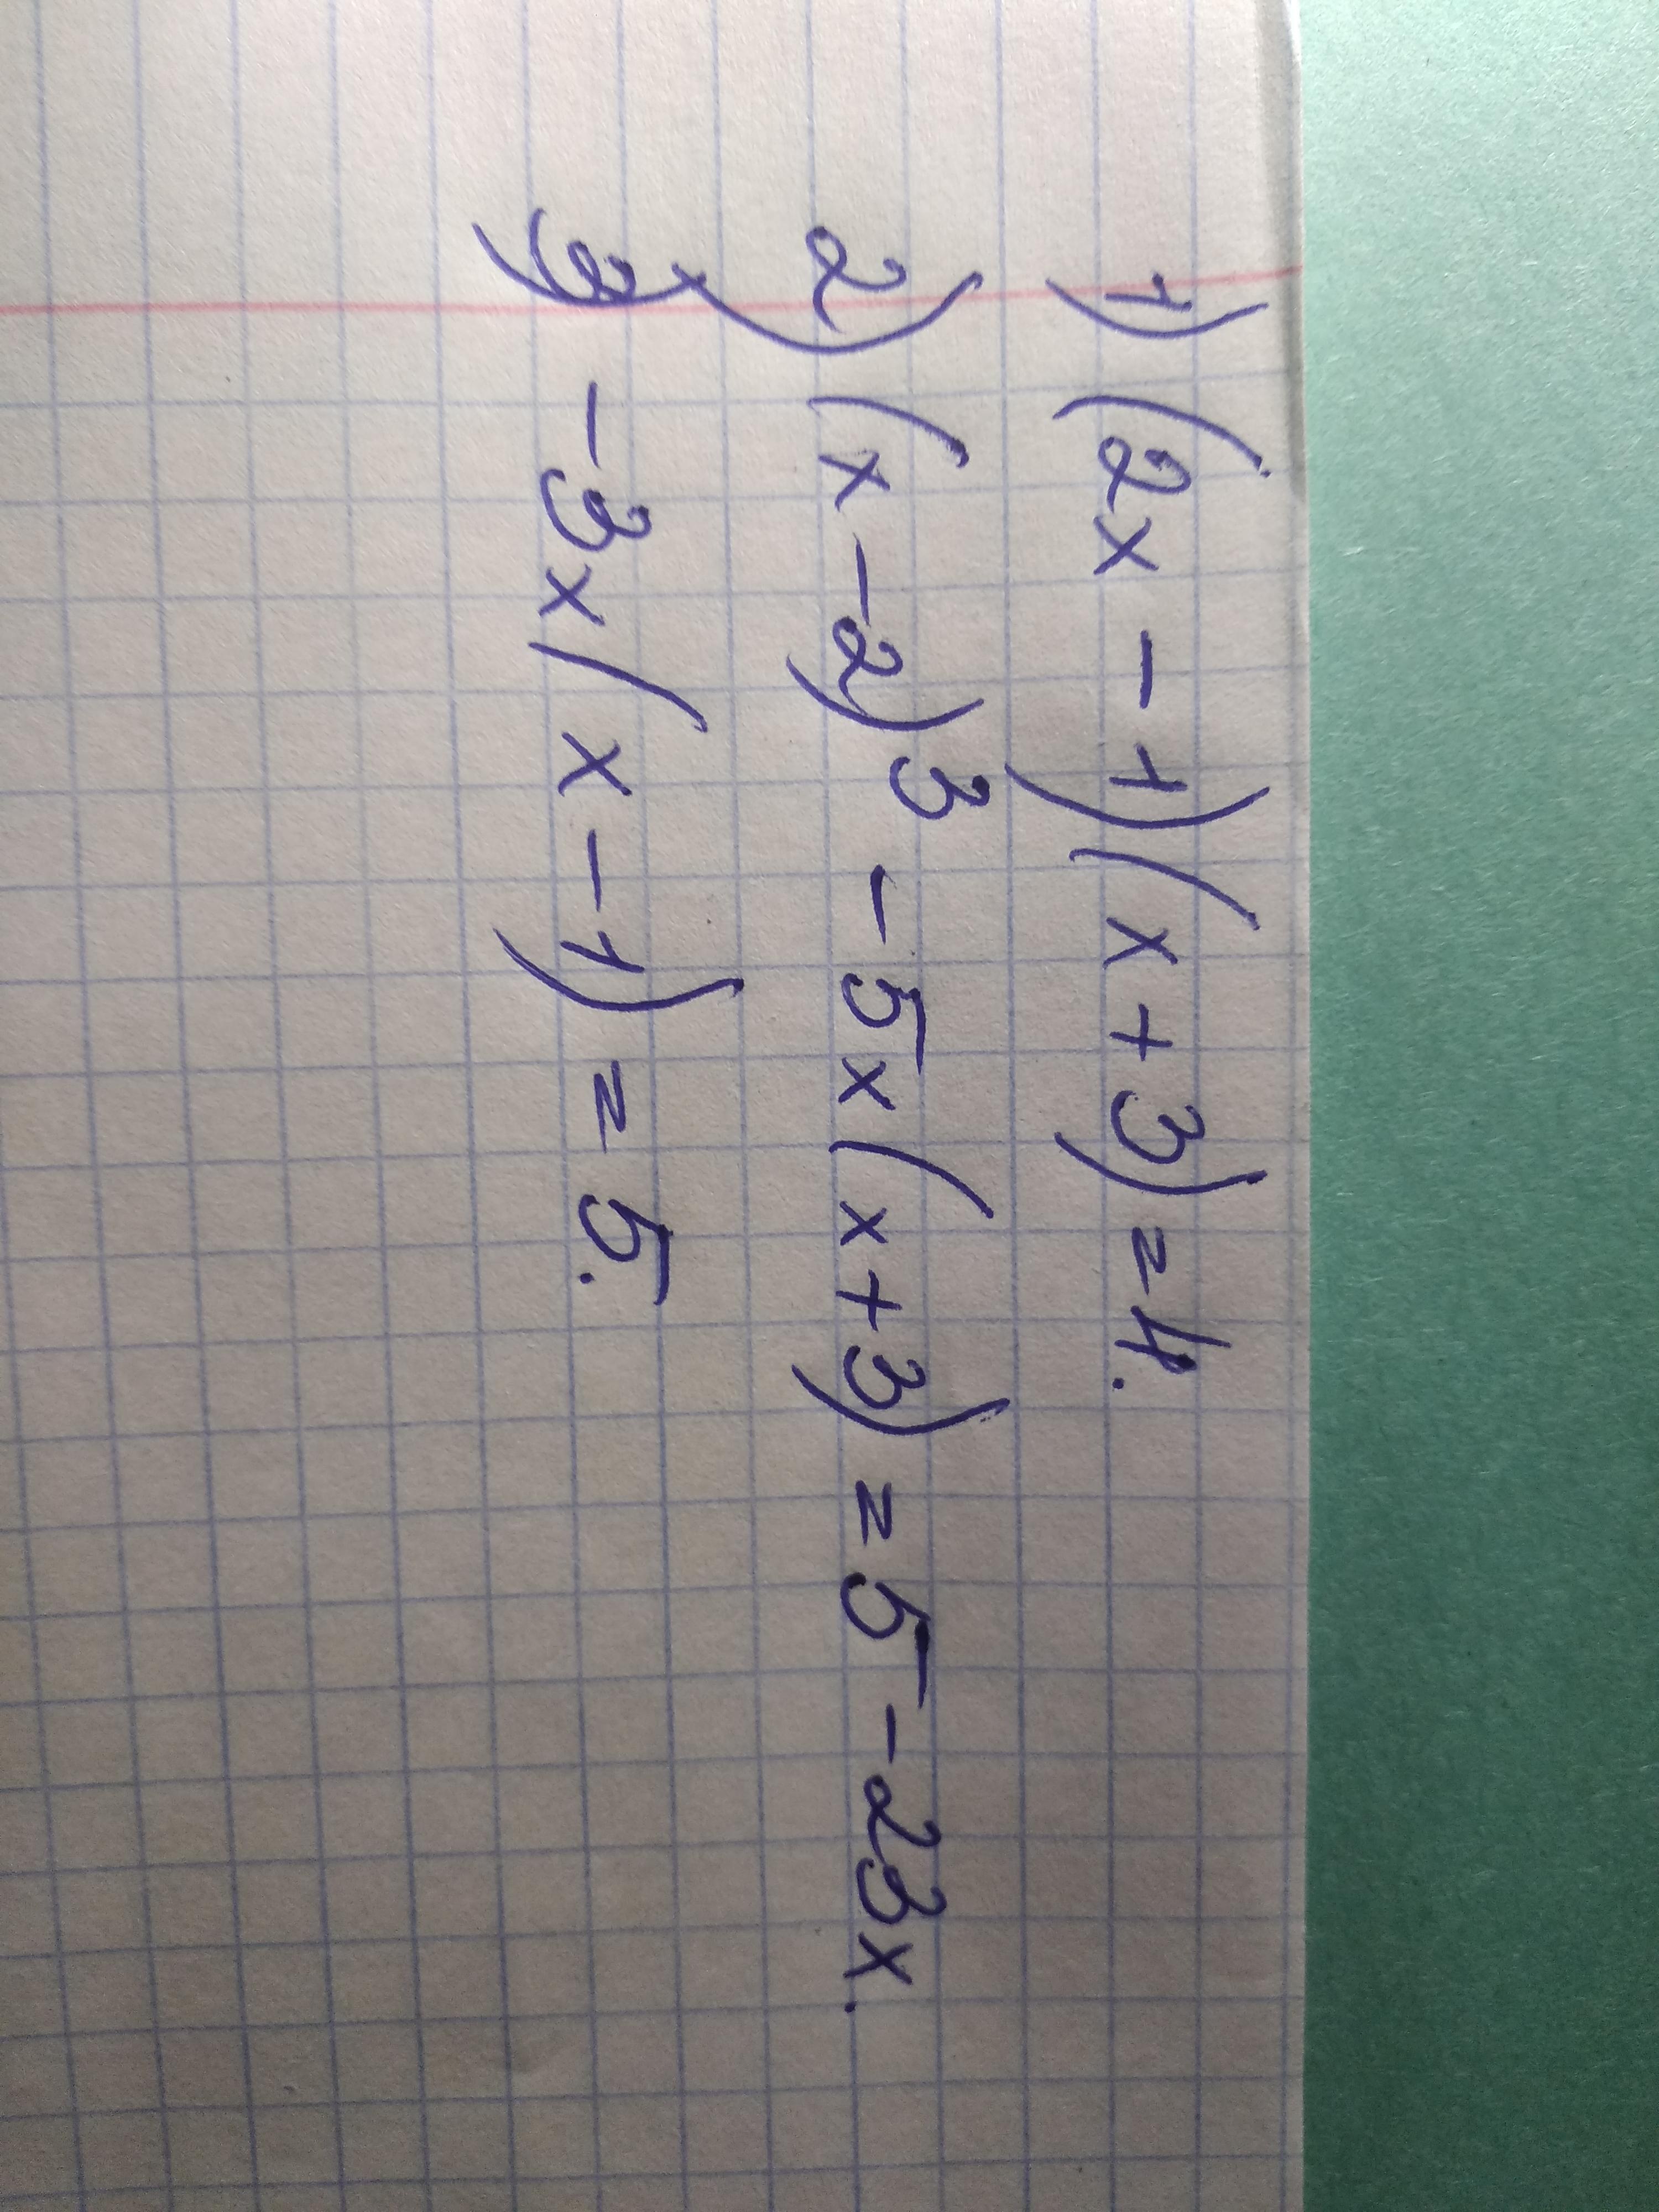 1) (2x - 1)(x + 3) = 4.
2) (x - 2)³ - 5x(x + 3) = 5 - 23x.
3) -3x(x - 1) = 5.